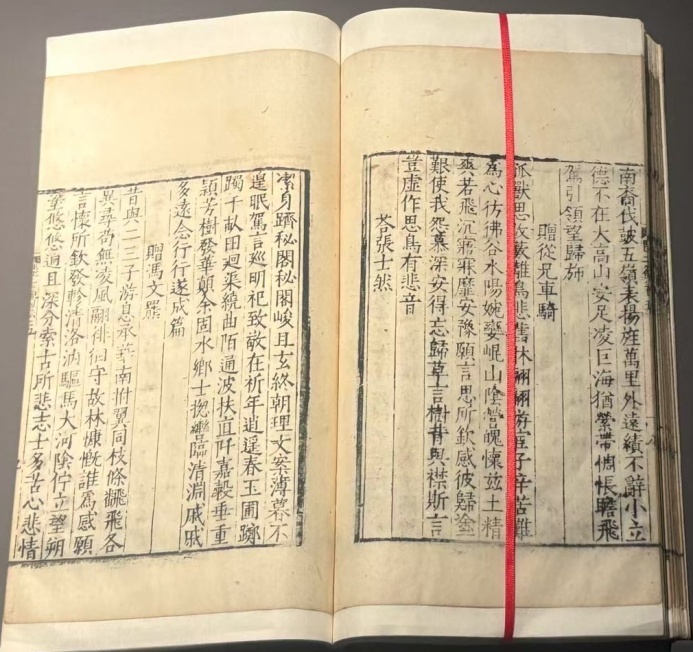 南裔伐鼓五嶺表揚旌萬里外遠績不辭小立
德不在大高山安足凌巨海猶縈帶惆悵瞻飛
駕引領望歸旆
贈從兄車騎
孤獸思故藪離鳥悲舊林翩翩游宦子辛苦誰
為心彷彿谷水陽婉孌岷山陰營魄懷兹土精
爽若飛沉寤寐靡安豫願言思所欽感彼歸塗
艱使我怨慕深安得忘歸草言樹背與襟斯言
豈虛作思鳥有悲音
荅張士然
潔身躋秘閣秘閣峻且玄終朝理文案薄暮不
遑眠駕言巡明祀致敬在祈年逍遥春玉圃躑
躅千畝田迴渠繞曲陌通波扶直阡嘉穀垂重
穎芳樹發華顛余固水鄉士揔轡臨清淵戚戚
多遠念行行遂成篇
贈馮文羆
昔與二三子游息承華南拊翼同枝條翻飛各
異尋苟無凌風翮徘徊守故林慷慨誰為感願
言懷所欽發軫清洛汭驅馬大河陰佇立望朔
塗悠悠迥且深分索古所悲志士多苦心悲情